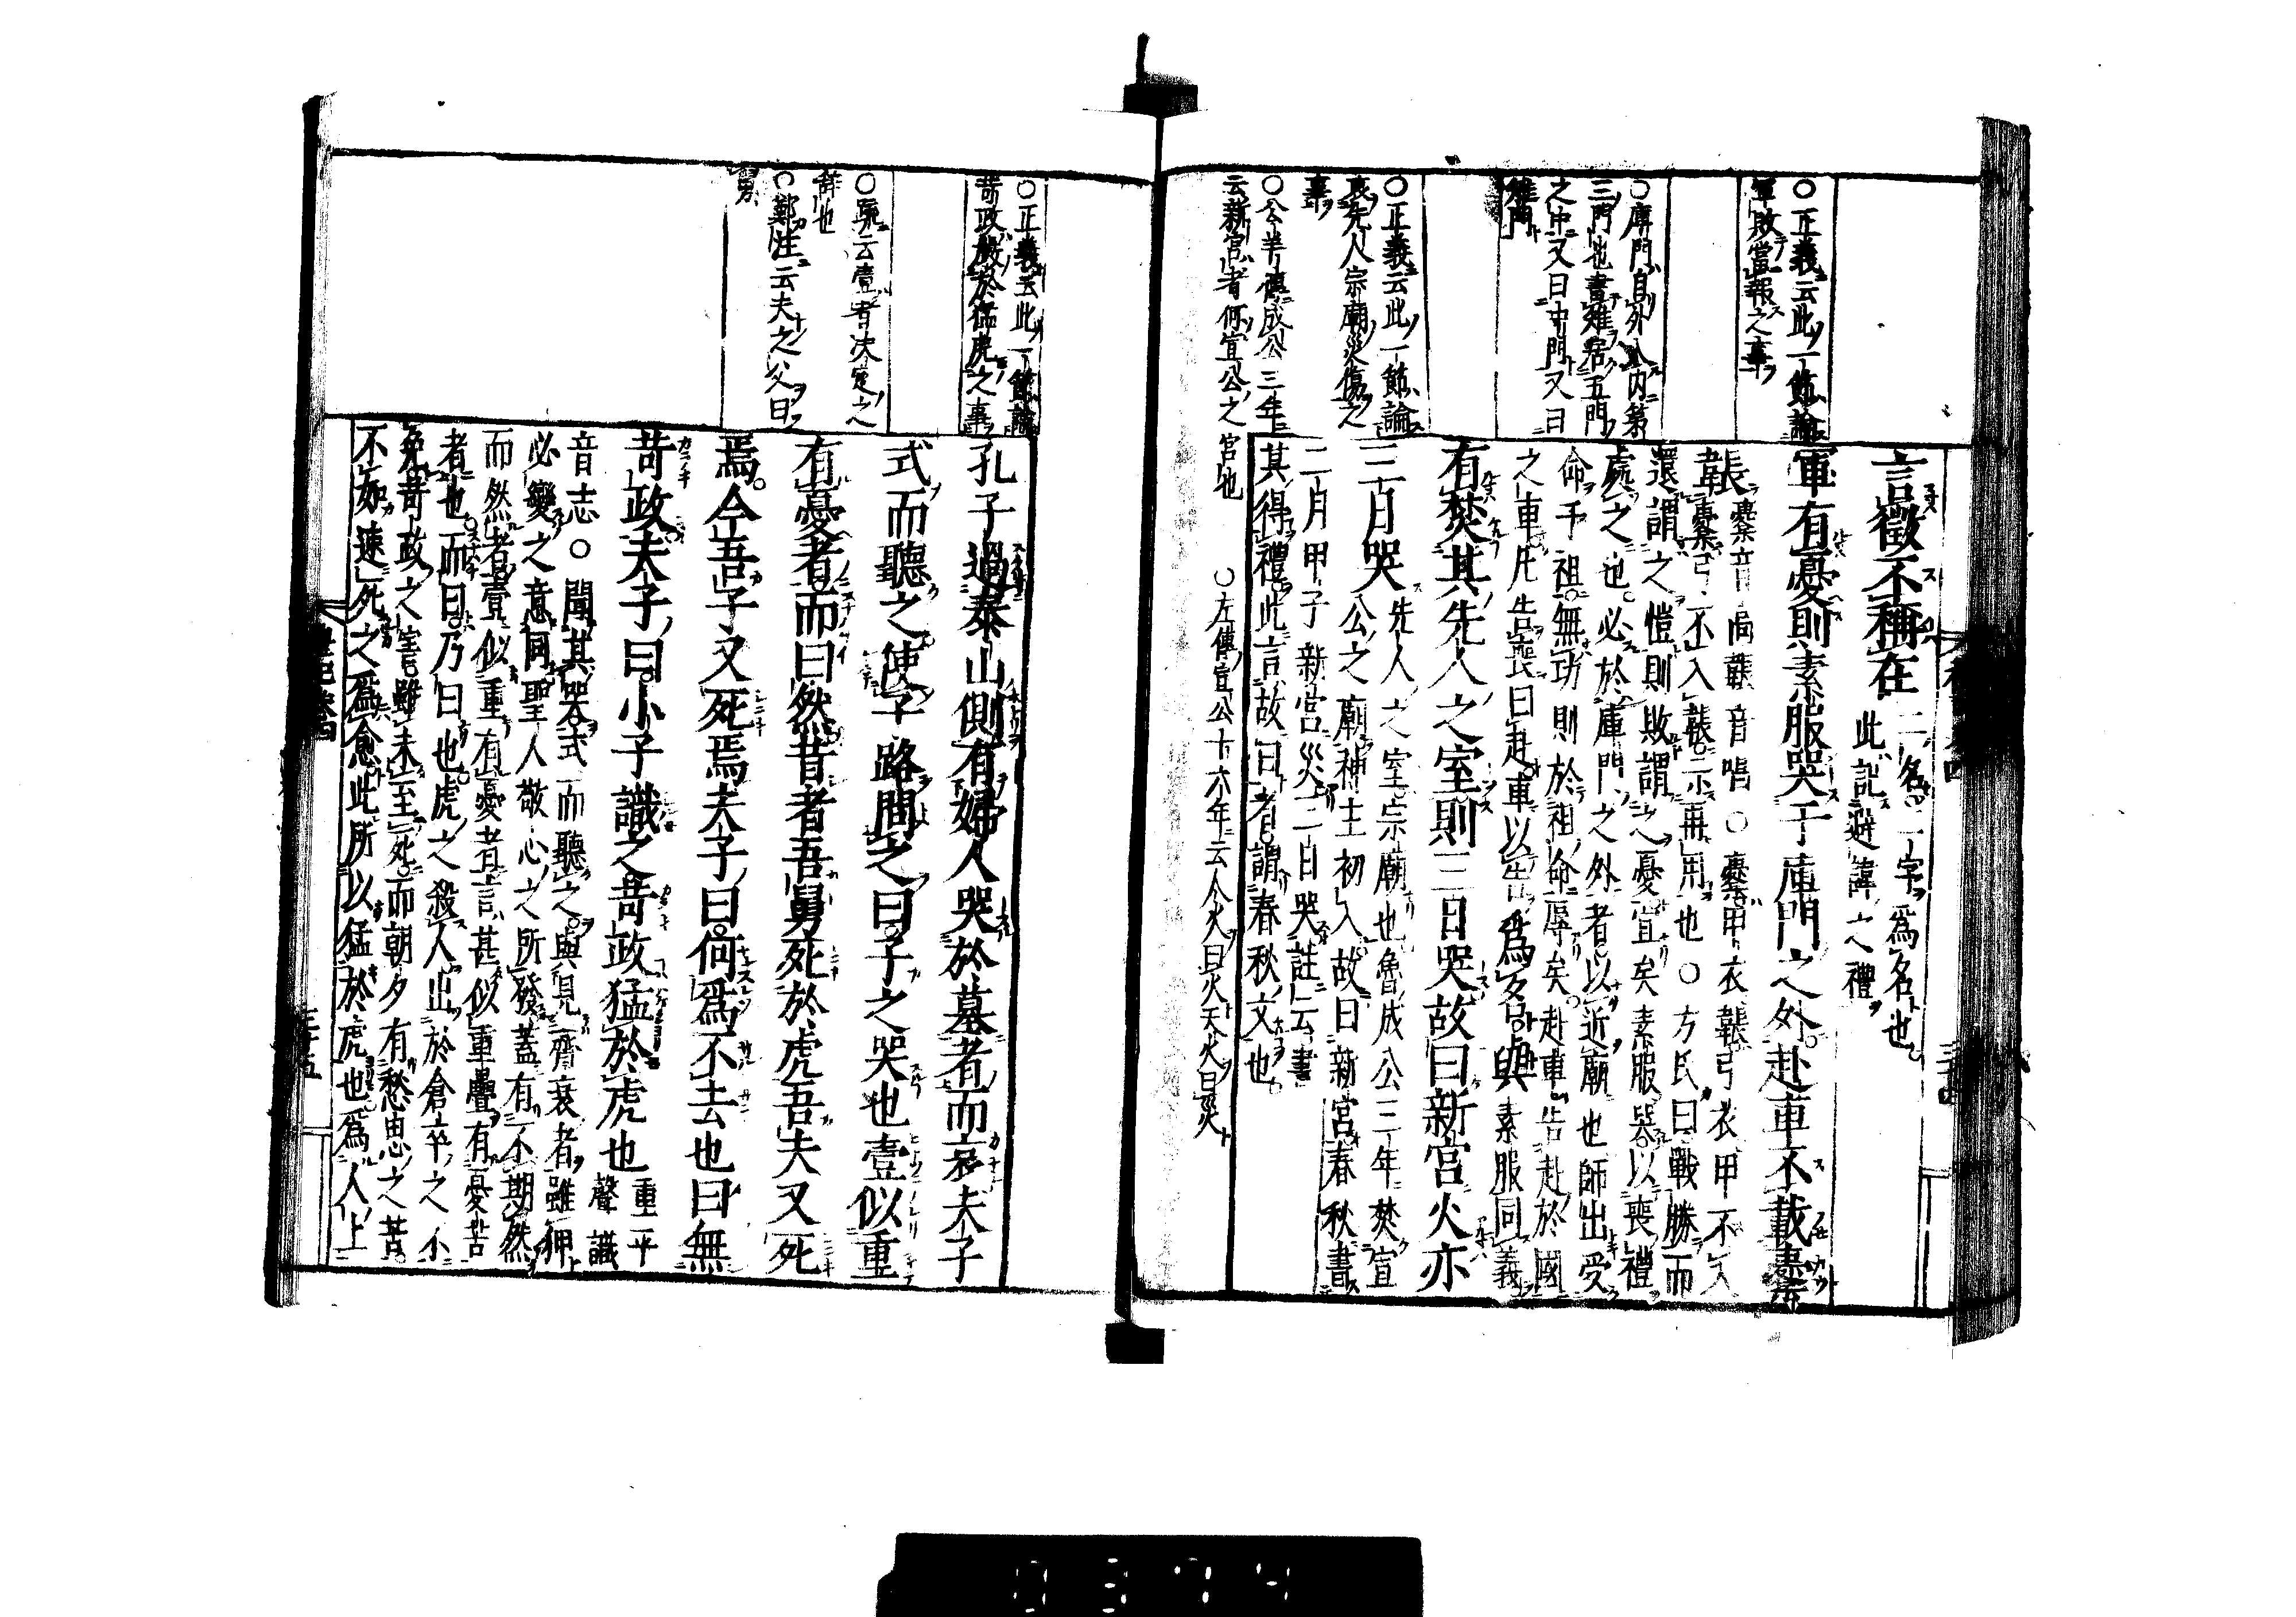 ○正義云此一節論
軍敗當報之事
○庫門自外入内第
三門也書雉居五門
之中又曰中門又曰
雉門
○正義云此一節論
哀先人宗廟災傷之
事
○公羊傳成公三年
云新宮者何宣公之宮也
言徵不稱在二名二字爲名也
此記避諱之禮
軍有憂則素服哭于庫門之外赴車不載櫜
韔櫜音高韔音唱○櫜甲衣韔弓衣甲不入
櫜弓不入韔示再用也○方氏曰戰勝而
還謂之愷則敗謂之憂宜矣素服哭以喪禮
處之也必於庫門之外者以近廟也師出受
命于祖無功則於祖命辱矣赴車告赴於國
之車凡告喪曰赴車以告敗爲名與素服同義
有焚其先人之室則三日哭故曰新宮火亦
三日哭先人之室宗廟也魯成公三年焚宣
公之廟神主初入故曰新宮春秋書
二月甲子新宮災三日哭註云書
其得禮此言故曰者謂春秋文也
○左傳宣公十六年云人火曰火天火曰災
○正義云此一節論
苛政嚴於猛虎之事
○疏云壹者決定之
辭也
○鄭注云夫之父曰
舅
孔子過泰山側有婦人哭於墓者而哀夫子
式而聽之使子路問之曰子之哭也壹似重
有憂者而曰然昔者吾舅死於虎吾夫又死
焉今吾子又死焉夫子曰何爲不去也曰無
苛政夫子曰小子識之苛政猛於虎也重平聲識
音志○聞其哭式而聽之與見齊衰者雖狎
必變之意同聖人敬心之所發蓋有不期然
而然者壹似重有憂者言甚似重疊有憂苦
者也而曰乃曰也虎之殺人出於倉卒之不
免苛政之害雖未至死而朝夕有愁思之苦
不如速死之爲愈此所以猛於虎也爲人上